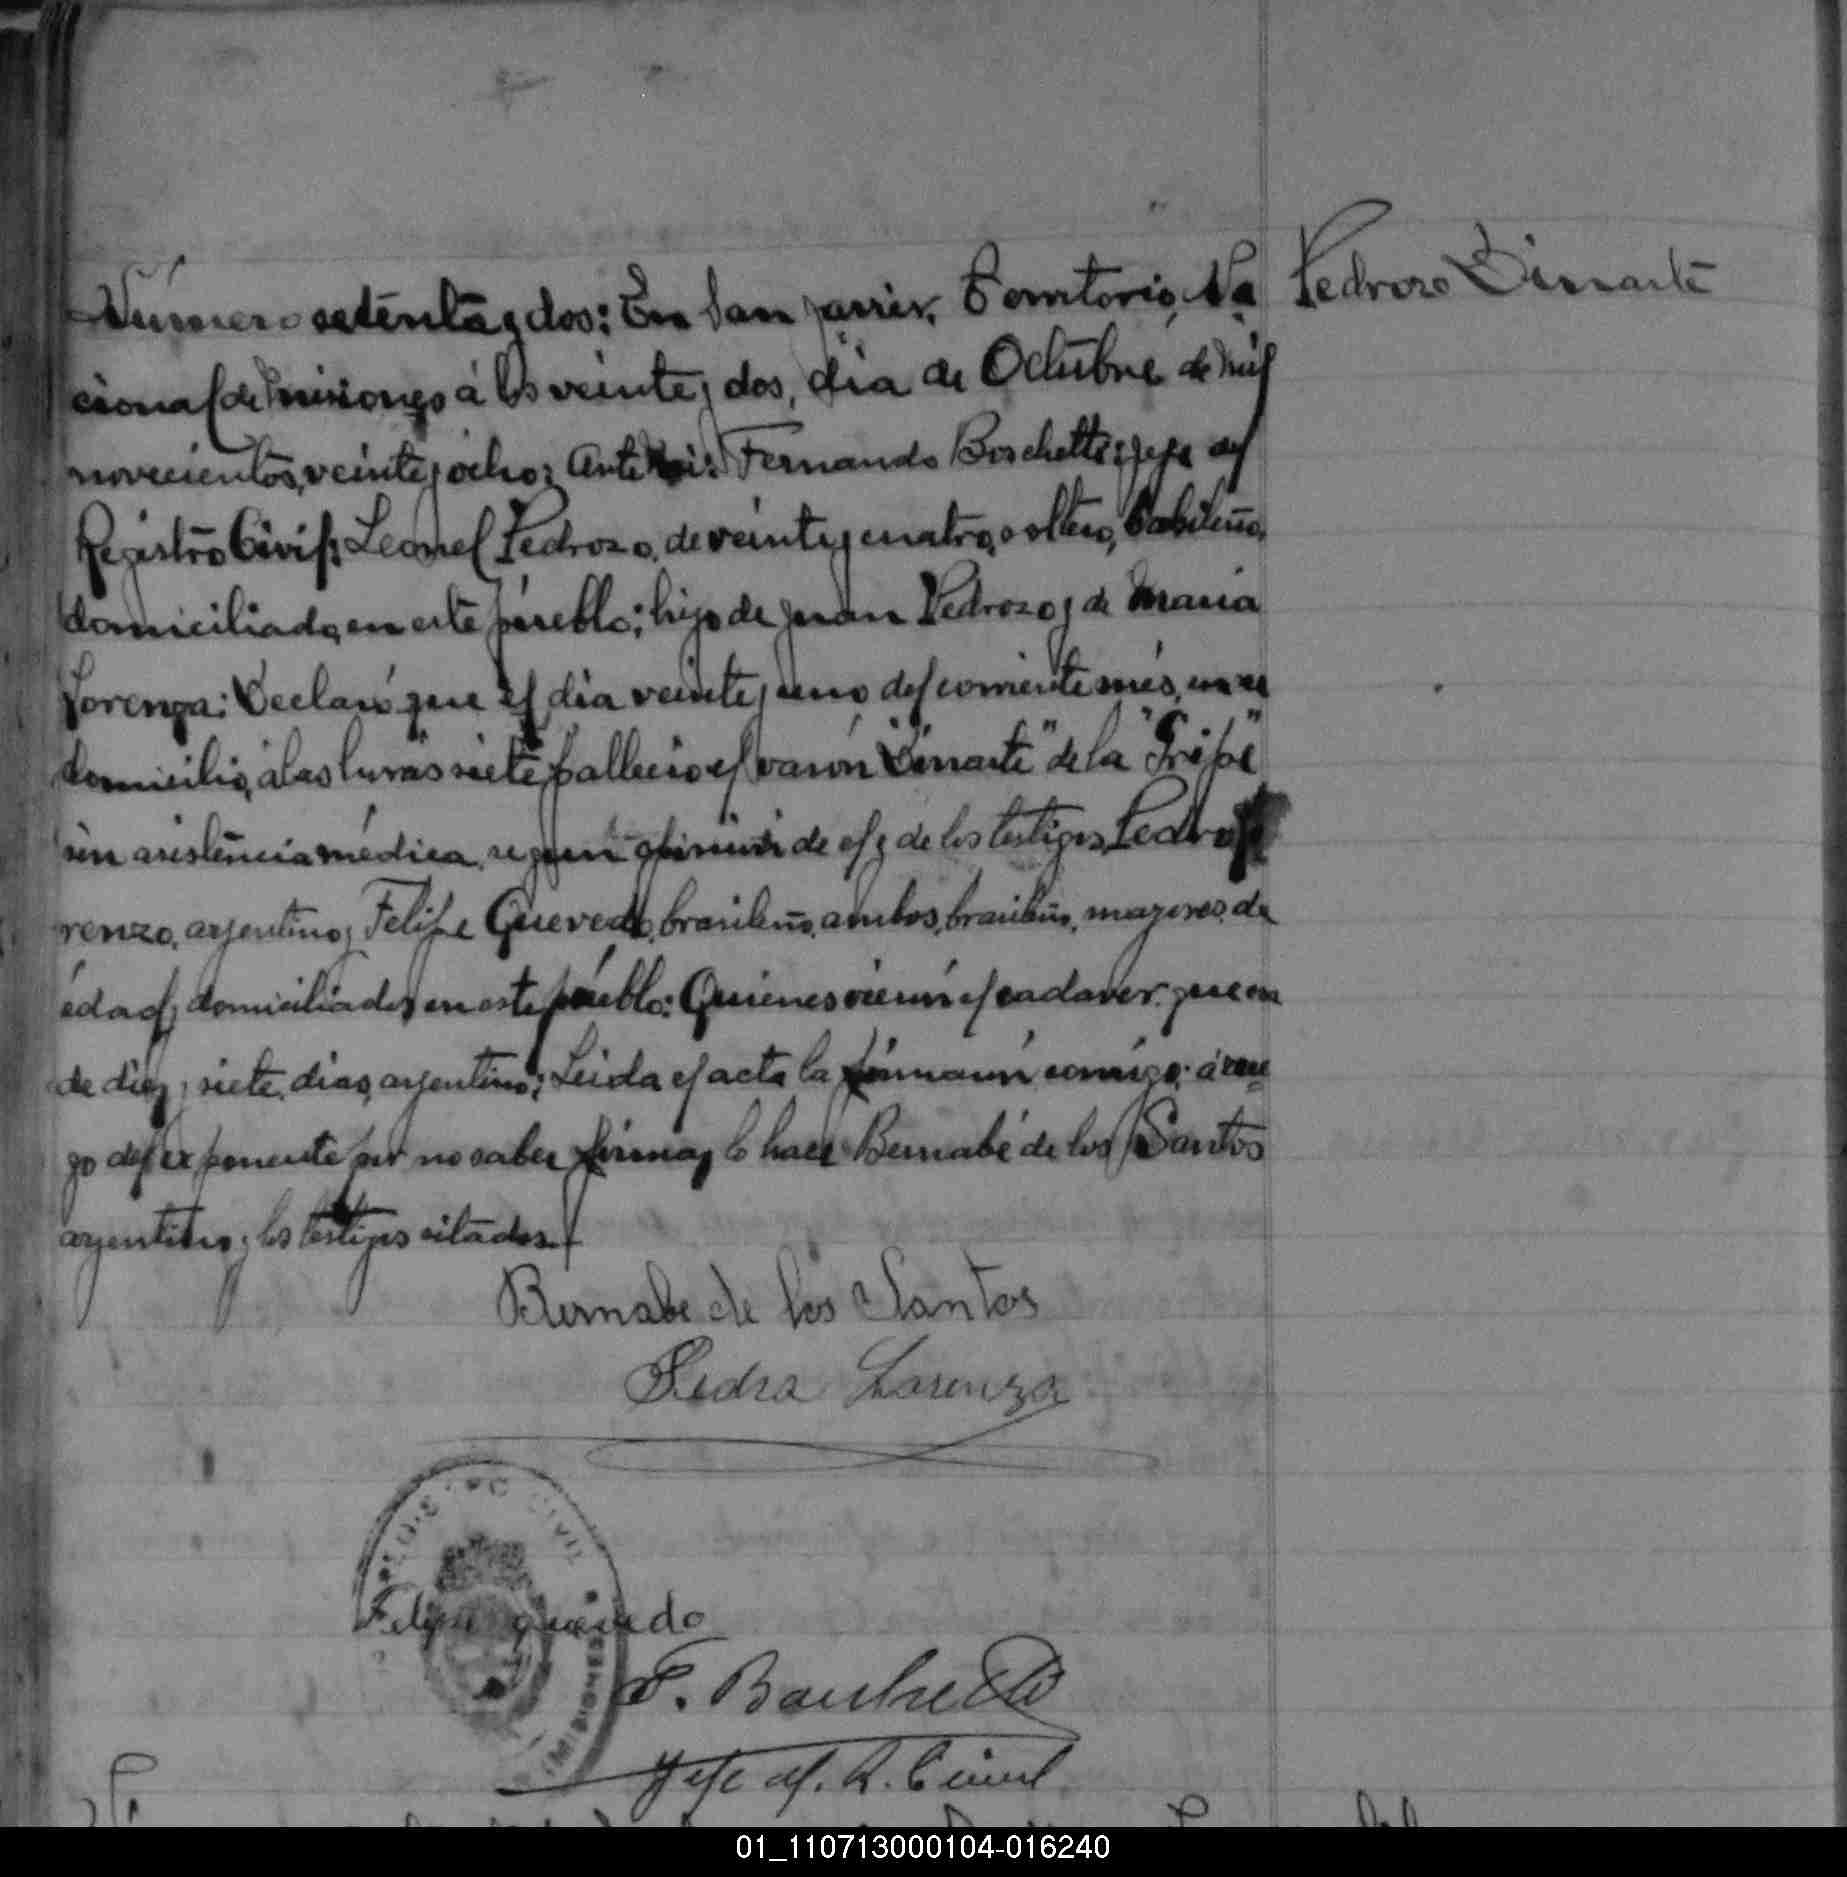 Pedrozo Dinarte
Número setenta y dos: En San Javier, Territorio Na
cional de Misiones á los veinte y dos, dia de Octubre de mil
novecientos, veinte y ocho; Ante mi: Fernando Boschetti: Jefe del
Registro Civil; Leonel Pedrozo, de veinte y cuatro, soltero,
domiciliado, en este pueblo; hijo de Juan Pedrozo y de Maria
Lorenza: Declaró que el dia veinte y uno del corriente mes, en su
domicilio, á las horas siete fallecio el varón "Dinarte" de la "Gripe"
sin asistencia médica, segun de el y de los testigos, Pedro
renzo, argentino y Felipe Quevedo, brasileño, ambos, brasileño, mayores, de
edad y domiciliados en este pueblo: Quienes vieron el cadaver. que era
de diez y siete, dias, argentino; Leida el acta la firmaron conmigo: á rue
go del exponente por no saber firmar, lo hace Bernabé de los Santos
argentino, y los testigos citados.
Bernabe de los Santos
Pedro Lorenzo
REGISTRO CIVIL
MISIONES
Felipe quevedo
F. Boschetti
Jefe del. R. Civil
01_110713000104-016240